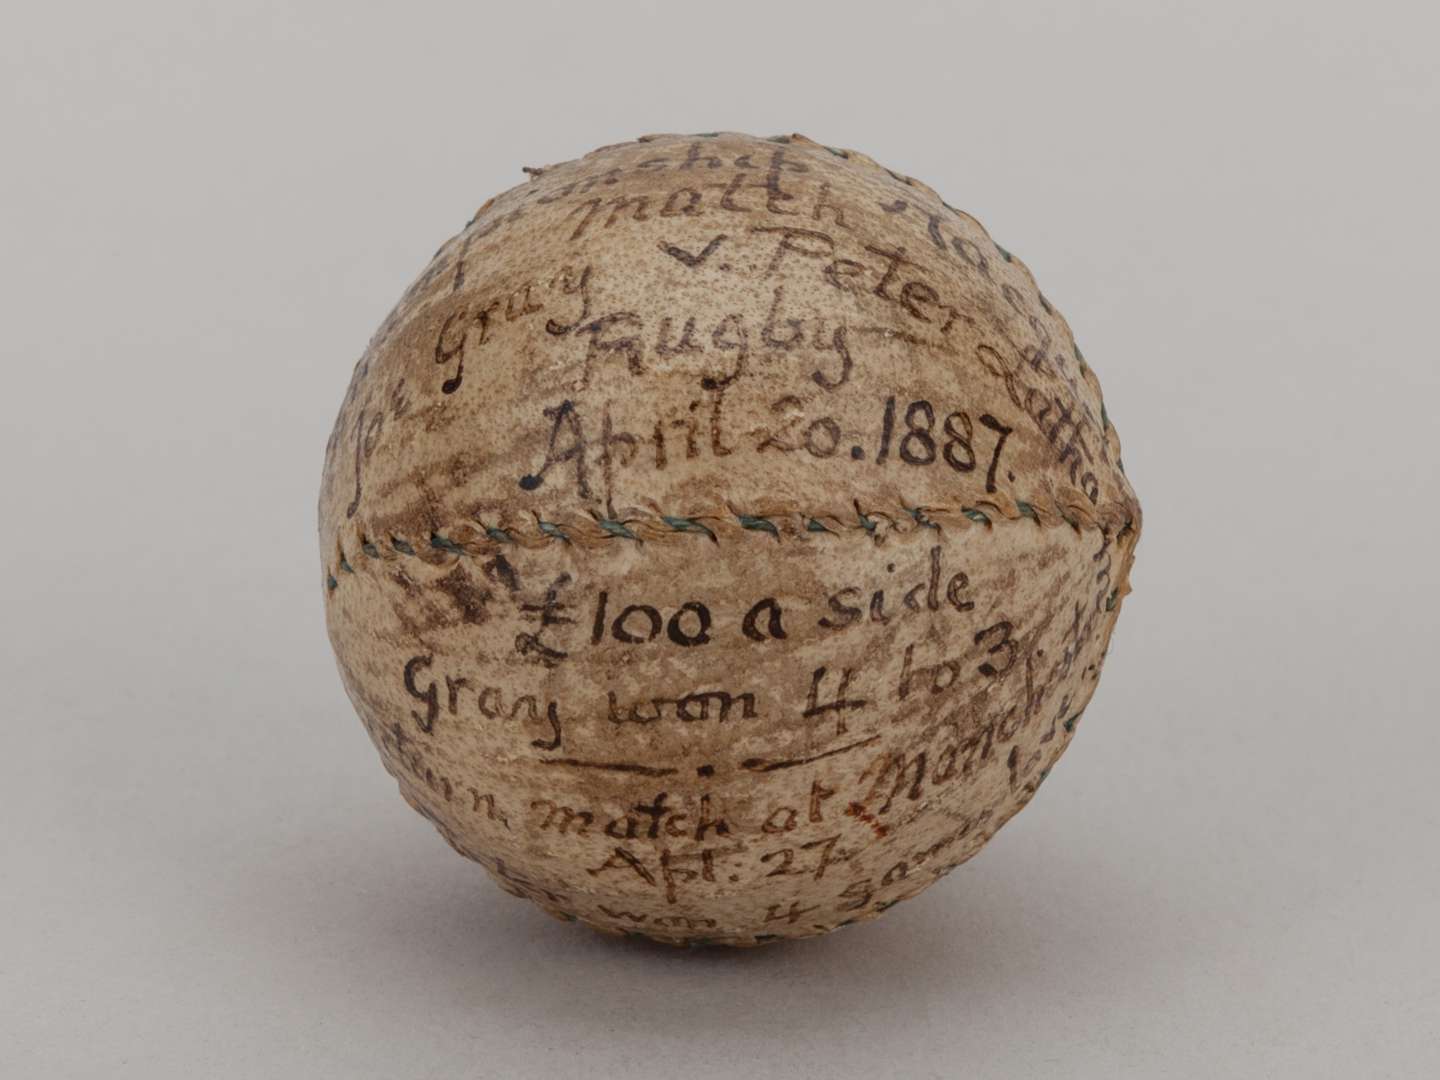 match
Joe Gray v. Peter Latham
Rugby
April 20. 1887.
£100 a side
Gray won 4 to 3
match at Manchester
Apl. 27
won 4